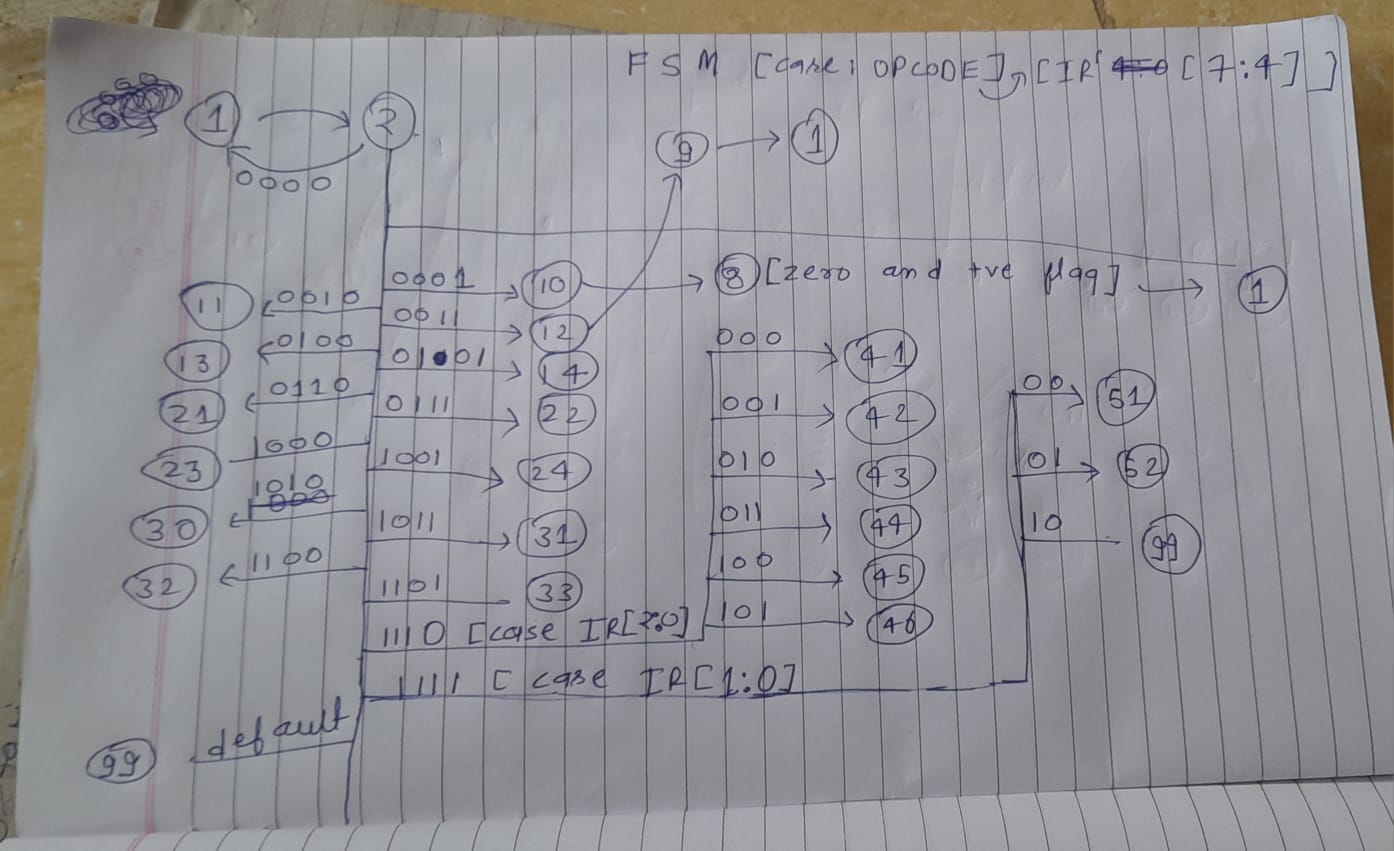 FSM [case: OPCODE], [IR [7:4]]
1 2
0000
9 1
0001 10 8 [zero and +ve flag] 1
11 0010
0011 12
13 0100
0101 14
21 0110
0111 22
23 1000
1001 24
30 1010
1011 31
32 1100
1101 33
1110 [case IR[2:0]
000 41
001 42
010 43
011 44
100 45
101 46
1111 [case IR[1:0]
00 51
01 52
10 99
99 default